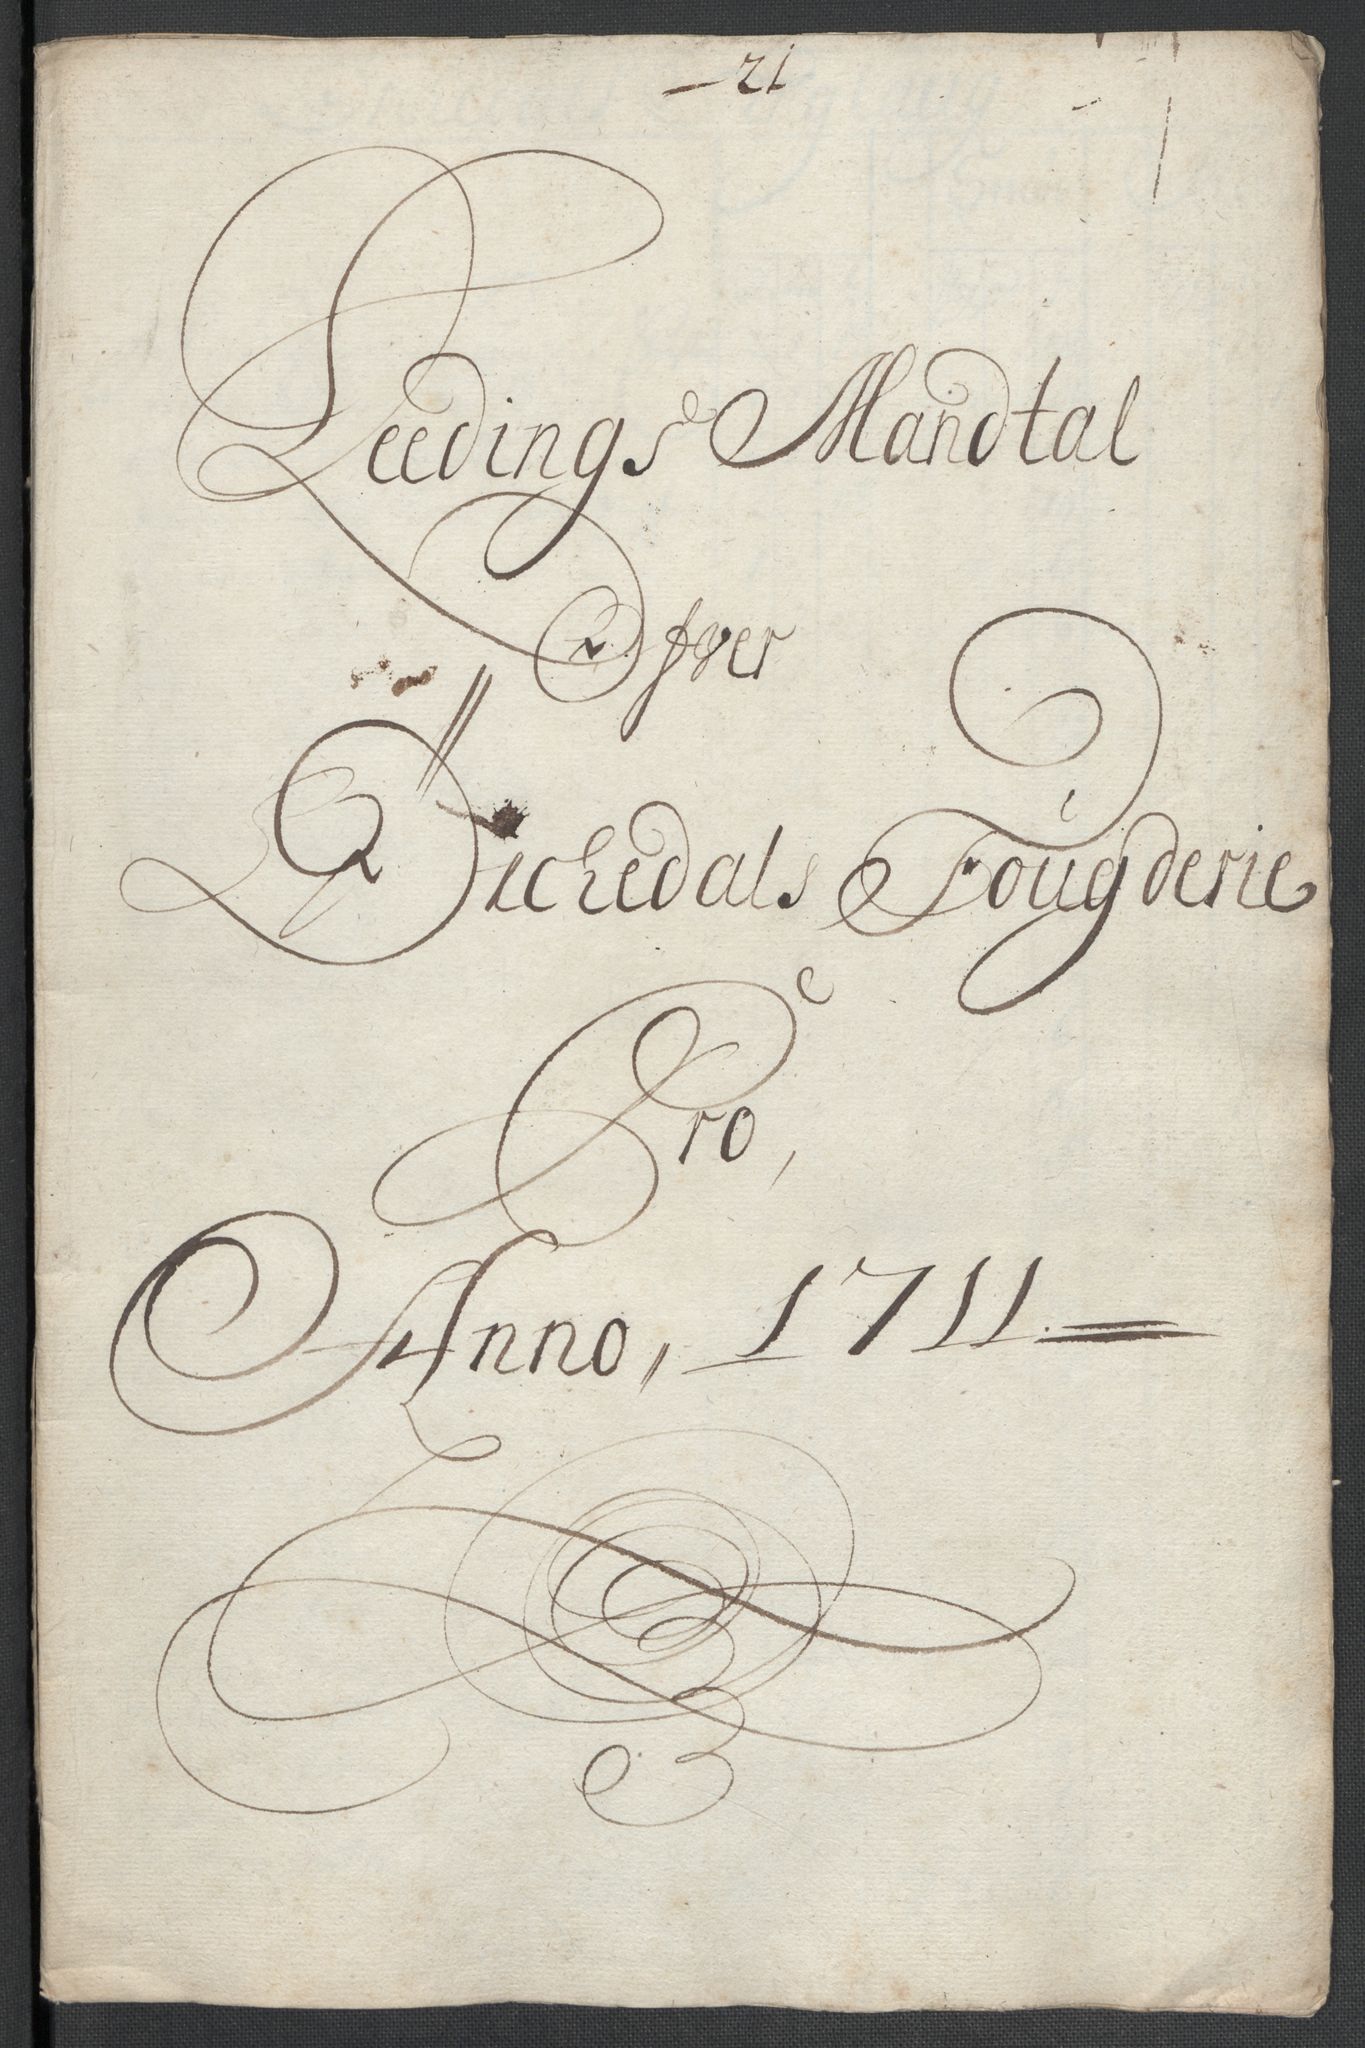 – 21
Leedings Mandtal
Ofver
Dichedals Fougderie
Pro,
Anno, 1711